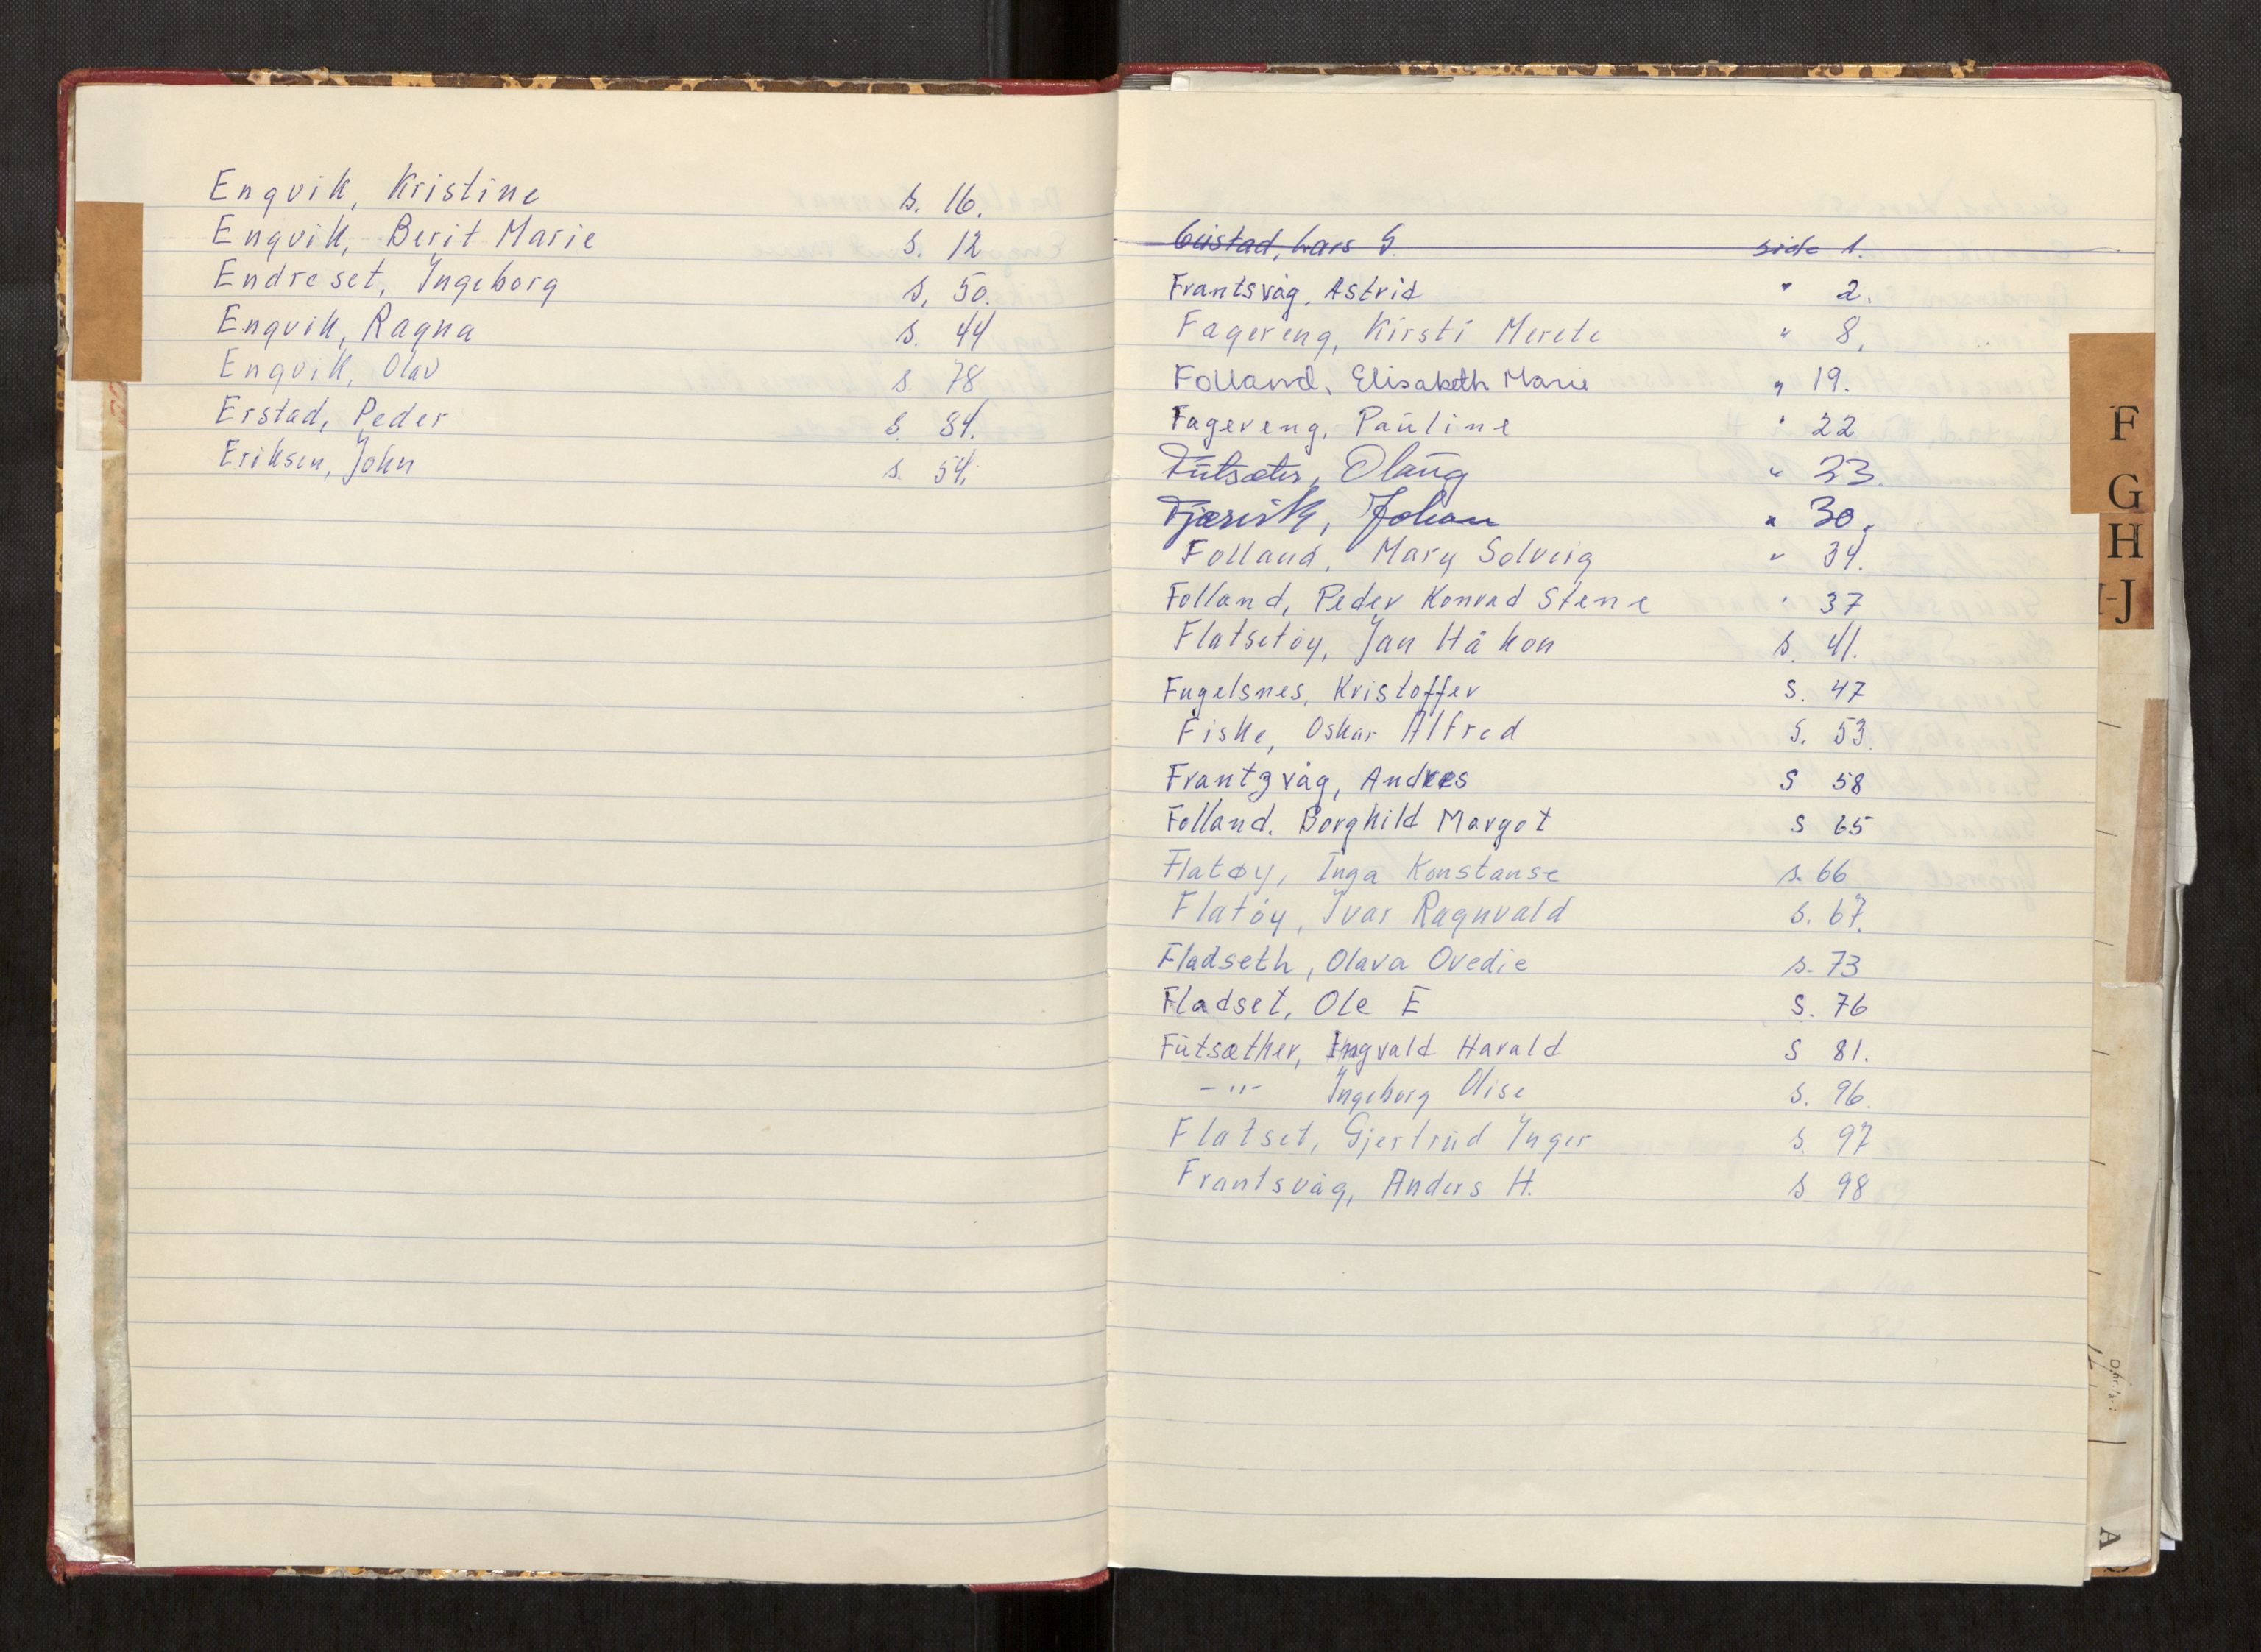 Engvik, Kristine s. 16.
Engvik, Berit Marie s. 12
Endreset, Ingeborg s. 50.
Engvik, Ragna s. 44
Engvik, Olav s. 78
Erstad, Peder s. 84.
Eriksen, John s. 54.
Gustad, Lars G. side 1.
Frantsvåg, Astrid " 2.
Fagereng, Kirsti Merete " 8.
Folland, Elisabeth Marie " 19.
Fagereng, Pauline " 22
Futsæter, Olaug " 23.
Fjærvik, Johan " 30.
Folland, Mary Solveig " 34.
Folland, Peder Konrad Stene " 37
Flatsetøy, Jan Håkon s. 41.
Fugelsnes, Kristoffer s. 47
Fiske, Oskar Alfred s. 53.
Frantzvåg, Andres s 58
Folland. Borghild Margot s 65
Flatøy, Inga Konstanse s. 66
Flatøy, Ivar Ragnvald s. 67.
Fladseth, Olava Ovedie s. 73
Fladset, Ole E s. 76
Futsæther, Ingvald Harald s 81.
- " - Ingeborg Olise s. 96.
Flatset, Gjertrud Inger s. 97
Frantsvåg, Anders H. s 98
F
G
H
I-J
A